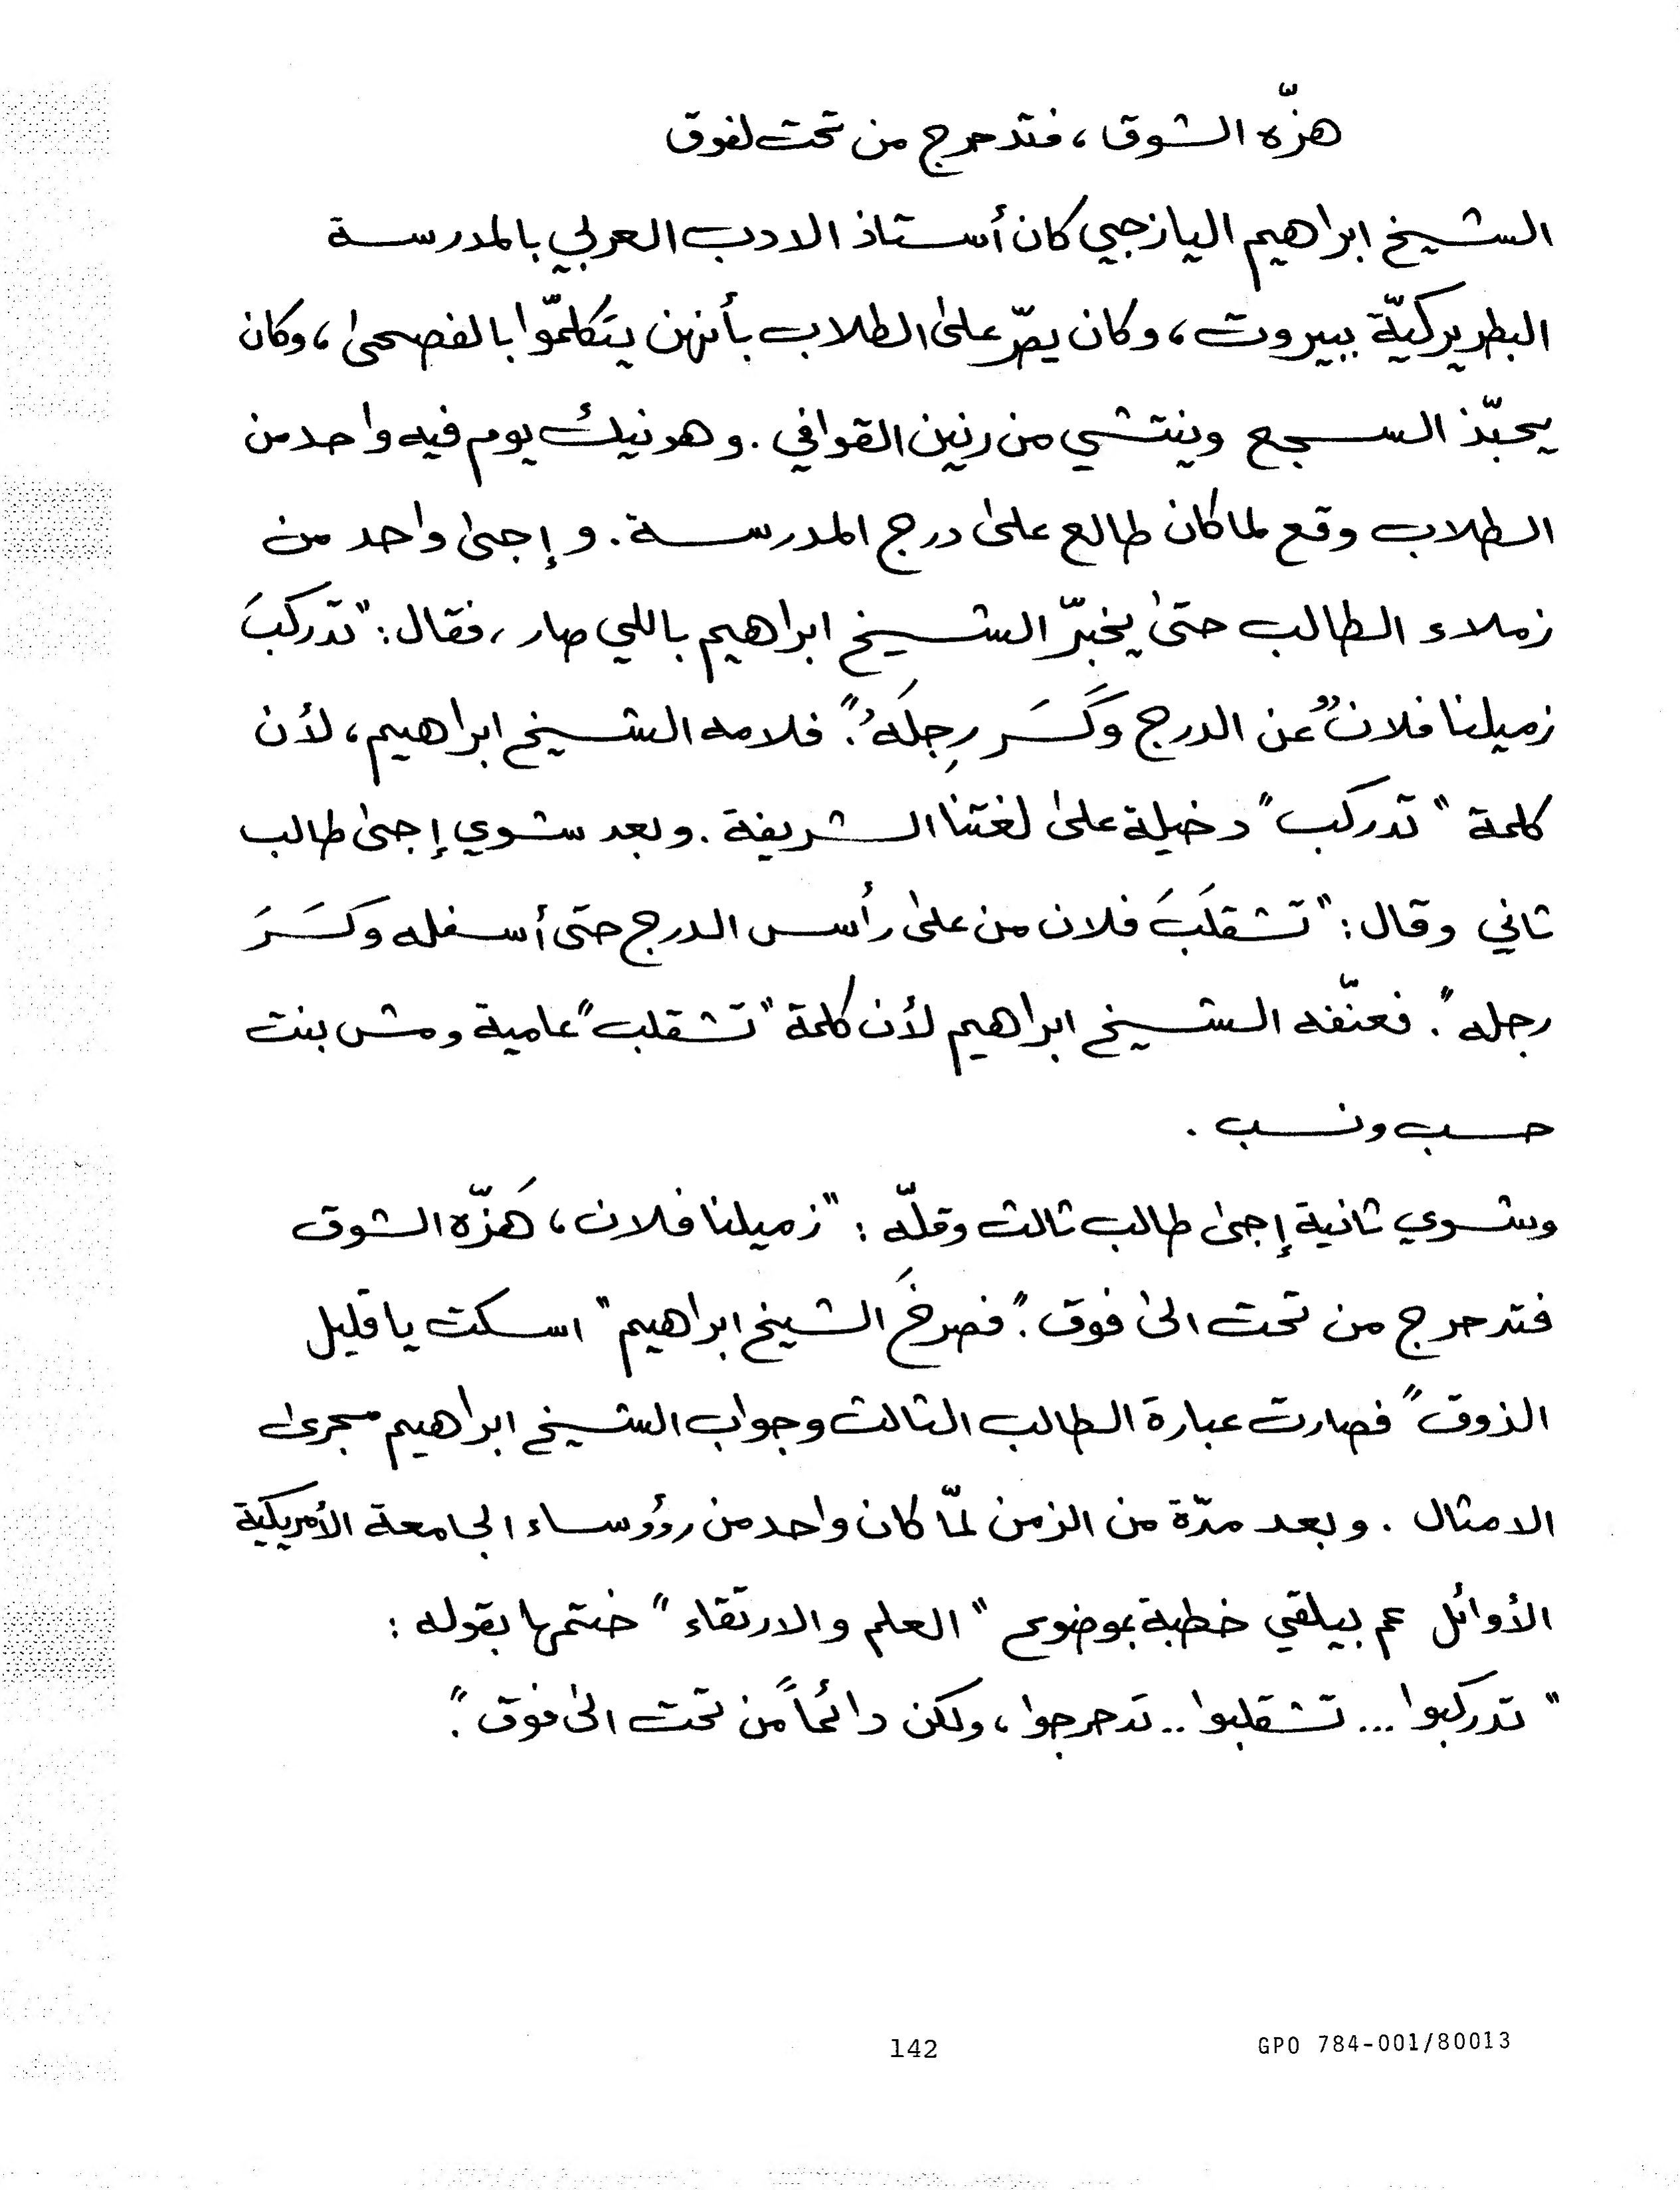 هزّه الشوق، فتدحرج من تحت لفوق
الشيخ ابراهيم اليازجي كان أستاذ الادب العربي بالمدرسة
البطريركيّة ببيروت، وكان يصّر على الطلاب بأنهن يتكلمّوا بالفصحى، وكان
يحبّذ السجع وينتشي من رنين القوافي. وهونيك يوم فيه واحد من
الطلاب وقع لما كان طالع على درج المدرسة. و إجى واحد من
زملاء الطالب حتى يخبّر الشيخ ابراهيم باللي صار، فقال: "تدركبَ
زميلنا فلانٌ عن الدرج وكَسَر رِجلَهُ". فلامه الشيخ ابراهيم، لأن
كلمة "تدركب" دخيلة على لغتنا الشريفة. وبعد شوي إجى طالب
ثاني وقال: "تشقلَبَ فلان من على رأس الدرج حتى أسفله وكَسَرَ
رجله". فعنّفه الشيخ ابراهيم لأن كلمة "تشقلب" عامية ومش بنت
حسب ونسب.
وشوي ثانية إجى طالب ثالث وقلّه: "زميلنا فلان، هَزّه الشوق
فتدحرج من تحت الى فوق". فصرخَ الشيخ ابراهيم "اسكت يا قليل
الذوق" فصارت عبارة الطالب الثالث وجواب الشيخ ابراهيم مجرى
الامثال. وبعد مدّة من الزمن لمّا كان واحد من رؤوساء الجامعة الأمريكية
الأوائل عم بيلقي خطبة بموضوع "العلم والارتقاء" ختمها بقوله:
"تدركبوا... تشقلبوا.. تدحرجوا، ولكن دائماً من تحت الى فوق".
142
GPO 784-001/80013